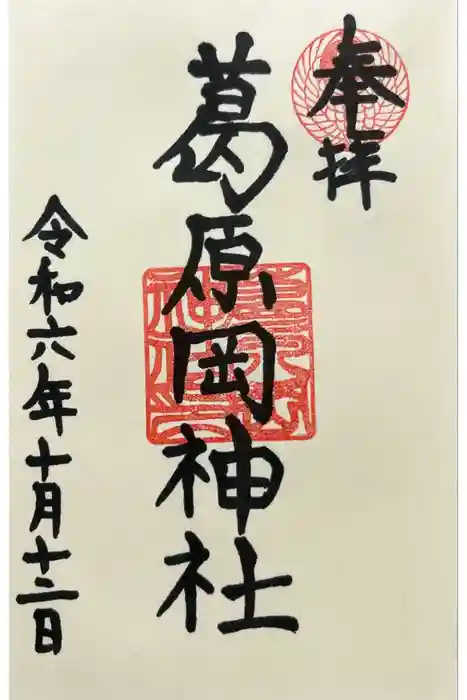 奉拝
葛原岡神社
令和六年十月十三日